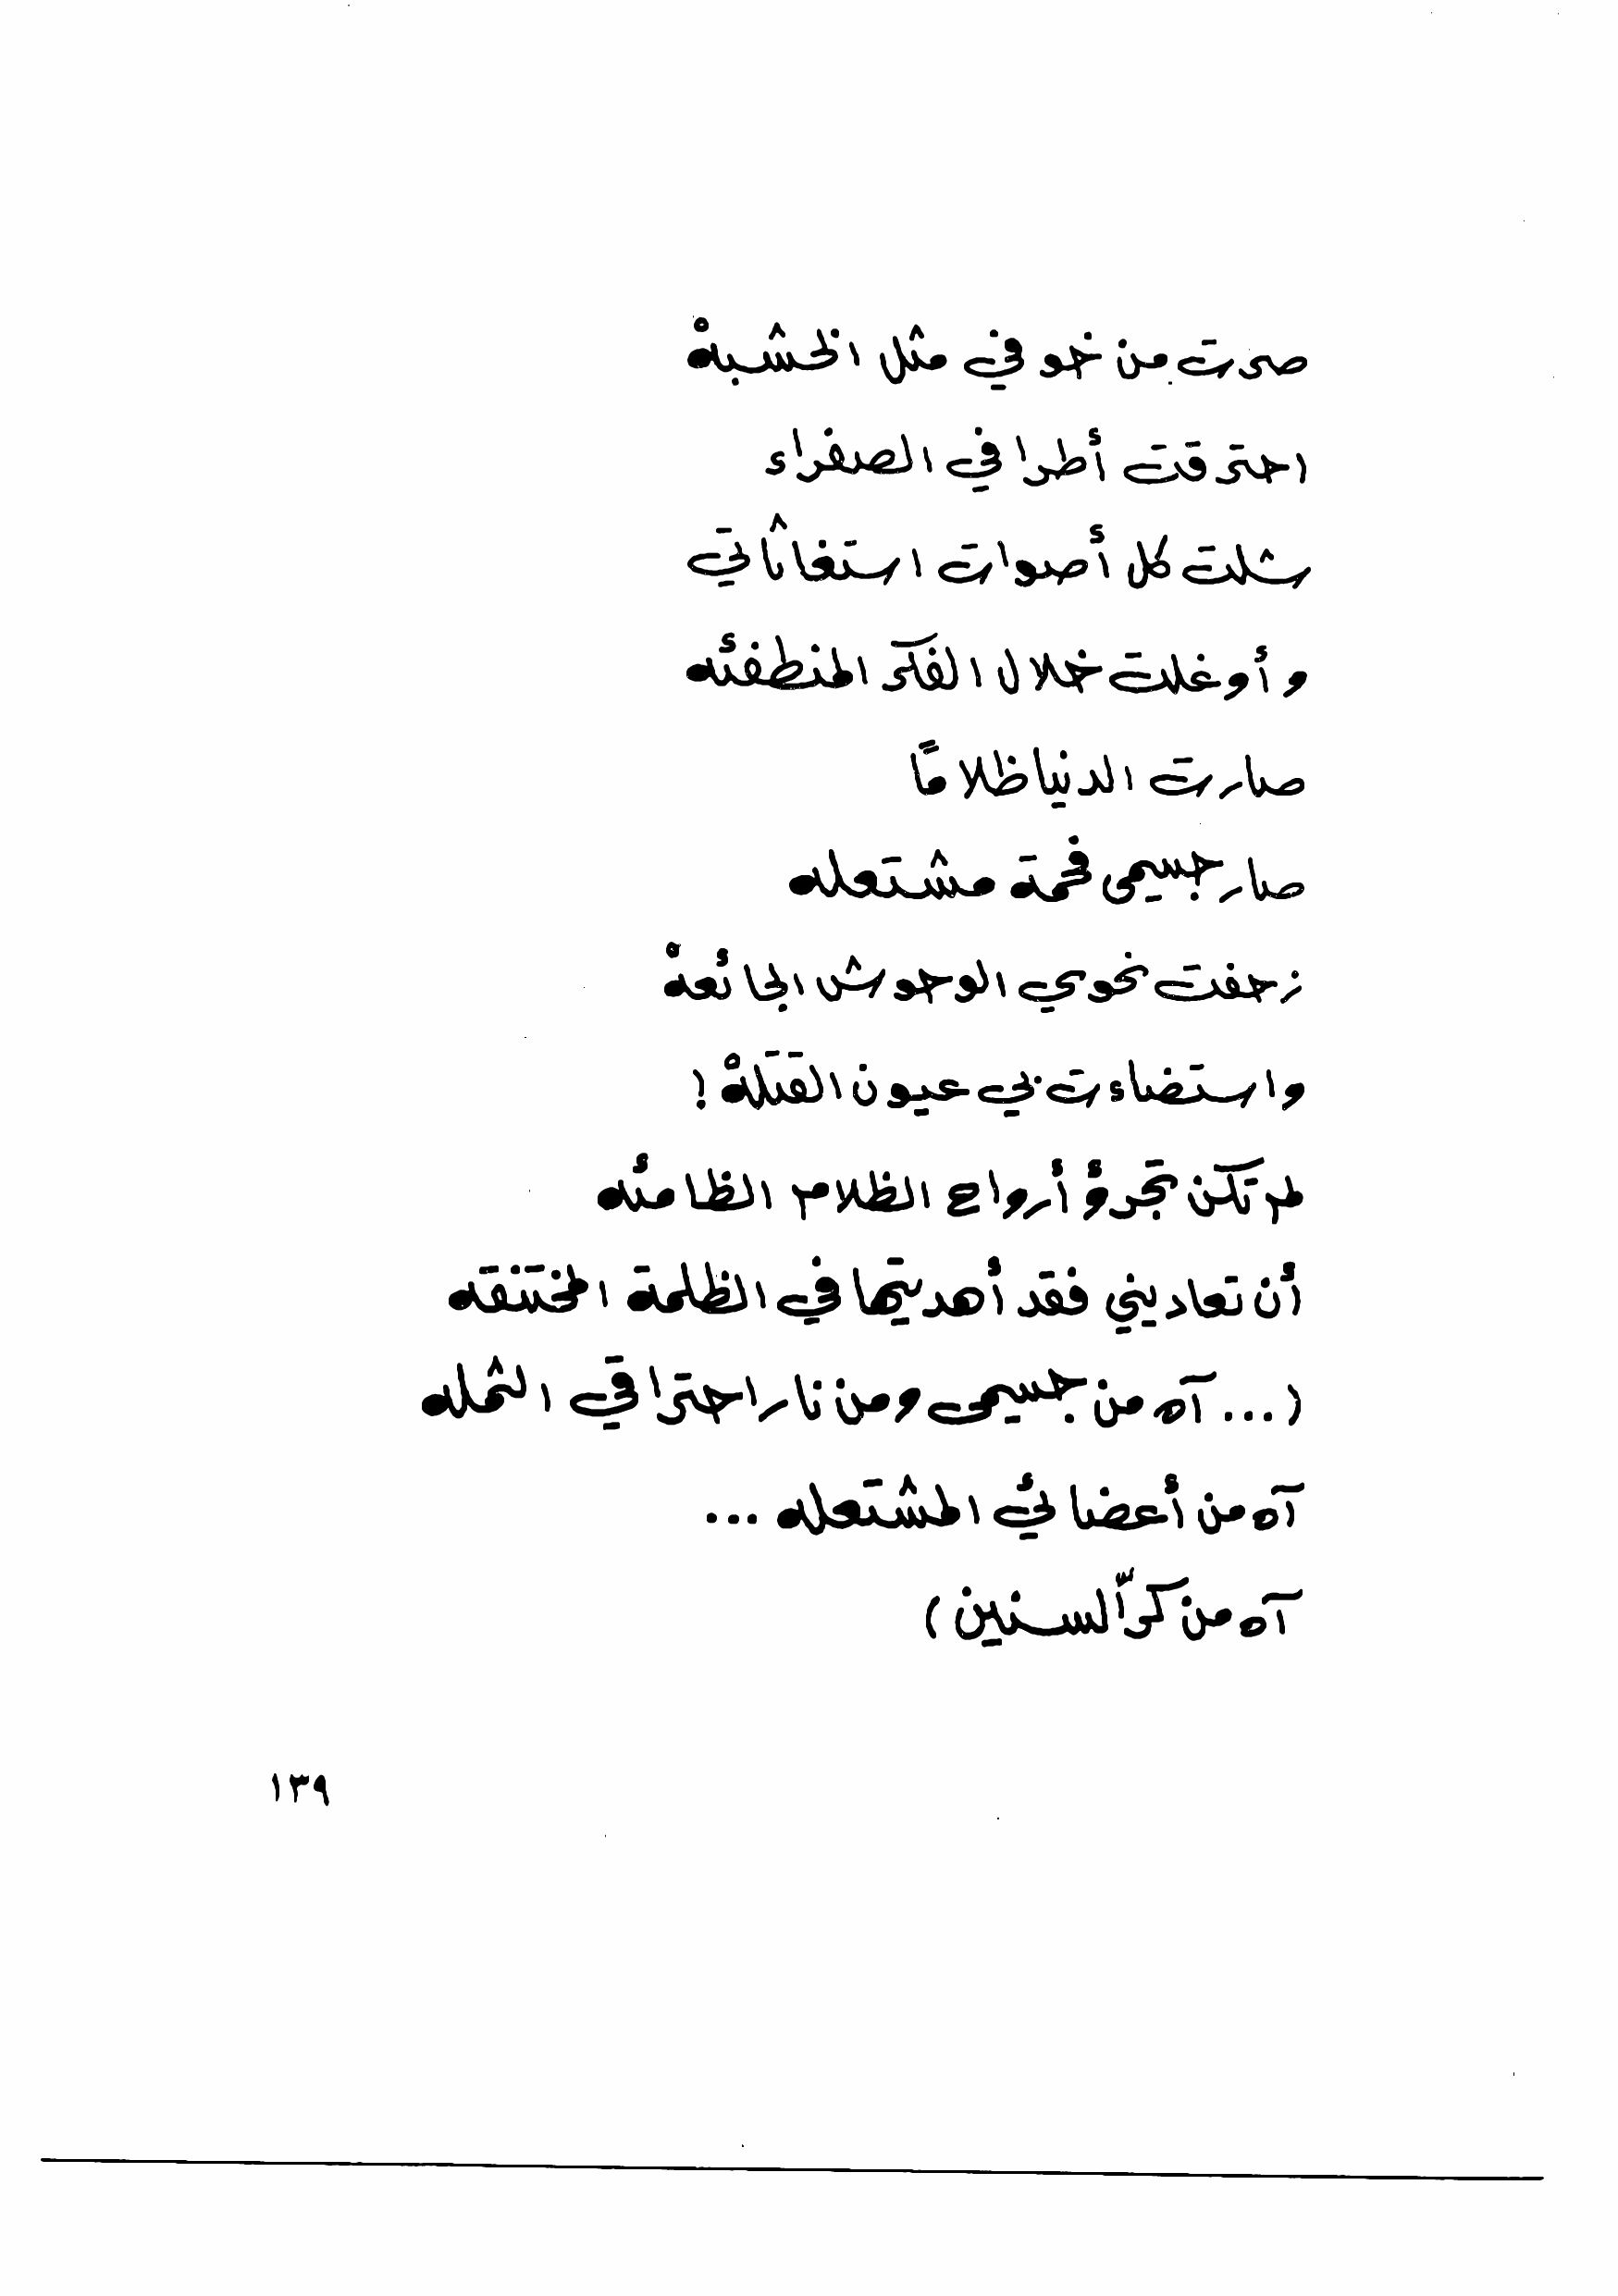 صرت من خوفي مثل الخشبهْ
احترقت أطرافي الصفراء
شلت كل أصوات استغاثاتي
وأوغلت خلال الفكر المنطفئه
صارت الدنيا ظلامًا
صار جسمي فحمة مشتعله
زحفت نحوي الوحوش الجائعهْ
واستضاءت بي عيون القَتَلهْ !
لم تكن تجرؤ أرواح الظلام الظامئه
أن تعاديني فقد أهديتها في الظلمة المختنقه
( ... آه من جسمي ومن نار احتراقي الثمله
آه من أعضائي المشتعله ...
آه من كرّ السنين )
١٣٩